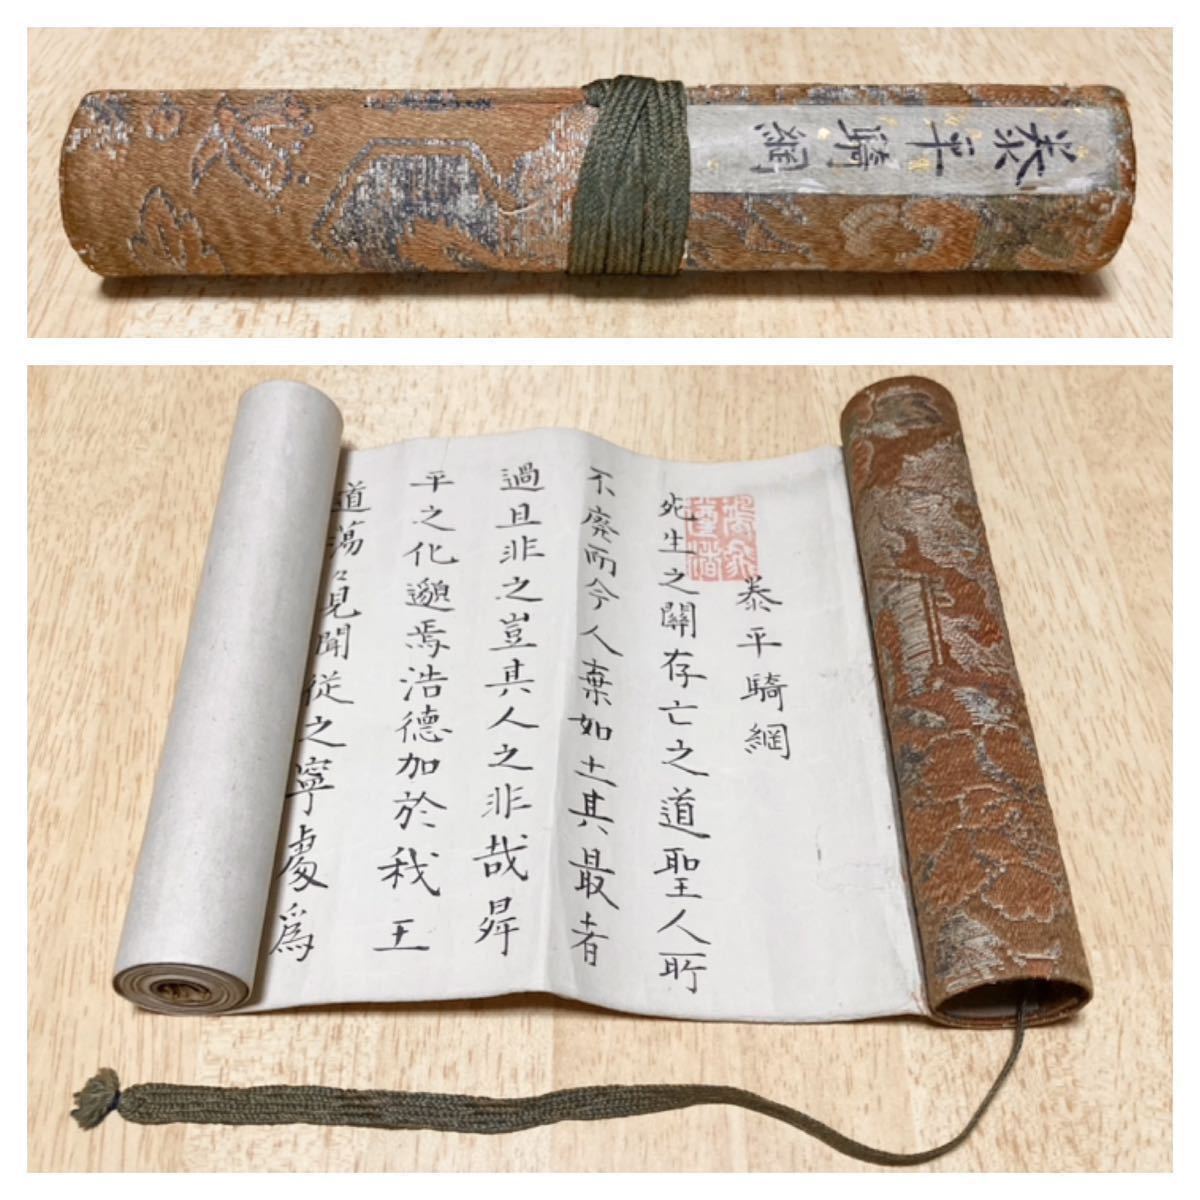 泰平騎綱
泰平騎綱
死生之關存亡之道聖人所
不廃而今人棄如土其最者
過且非之豈其人之非哉昇
平之化邈焉浩德加於我王
道蕩々見聞従之寧處爲